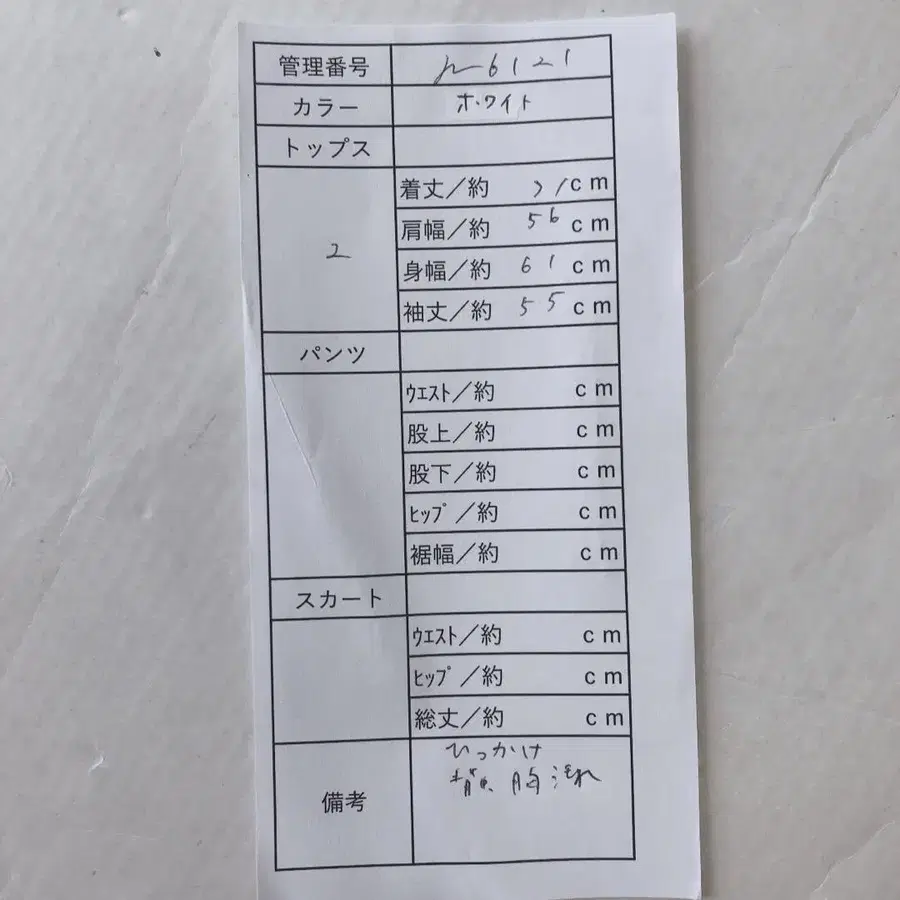 管理番号 6121
カラー ホワイト
トップス
2
着丈／約 71cm
肩幅／約 56 cm
身幅／約 61 cm
袖丈／約 55 cm
パンツ
ｳｴｽﾄ／約 cm
股上／約 cm
股下／約 cm
ﾋｯﾌﾟ／約 cm
裾幅／約 cm
スカート
ｳｴｽﾄ／約 cm
ﾋｯﾌﾟ／約 cm
総丈／約 cm
備考
ひっかけ
胸汚れ